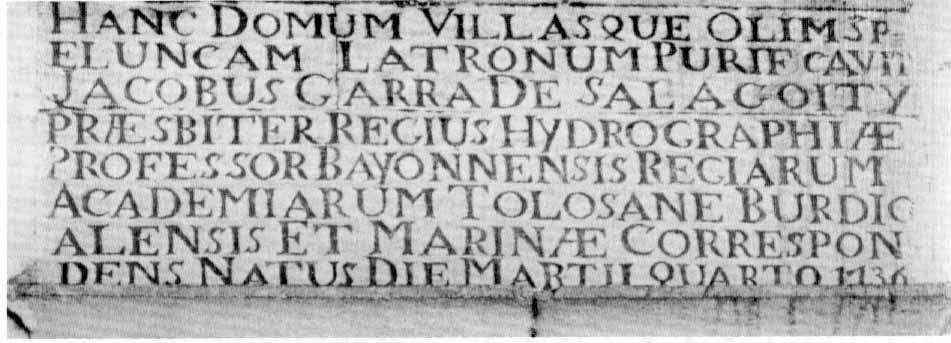 HANC DOMUM VILLASQUE OLIM SP
ELUNCAM LATRONUM PURIFCAVIT
JACOBUS GARRA DE SALAGOITY
PRÆSBITER REGIUS HYDROGRAPHIÆ
PROFESSOR BAYONNENSIS REGIARUM
ACADEMIARUM TOLOSANE BURDIG
ALENSIS ET MARINÆ CORRESPON
DENS NATUS DIE MARTII QUARTO 1736